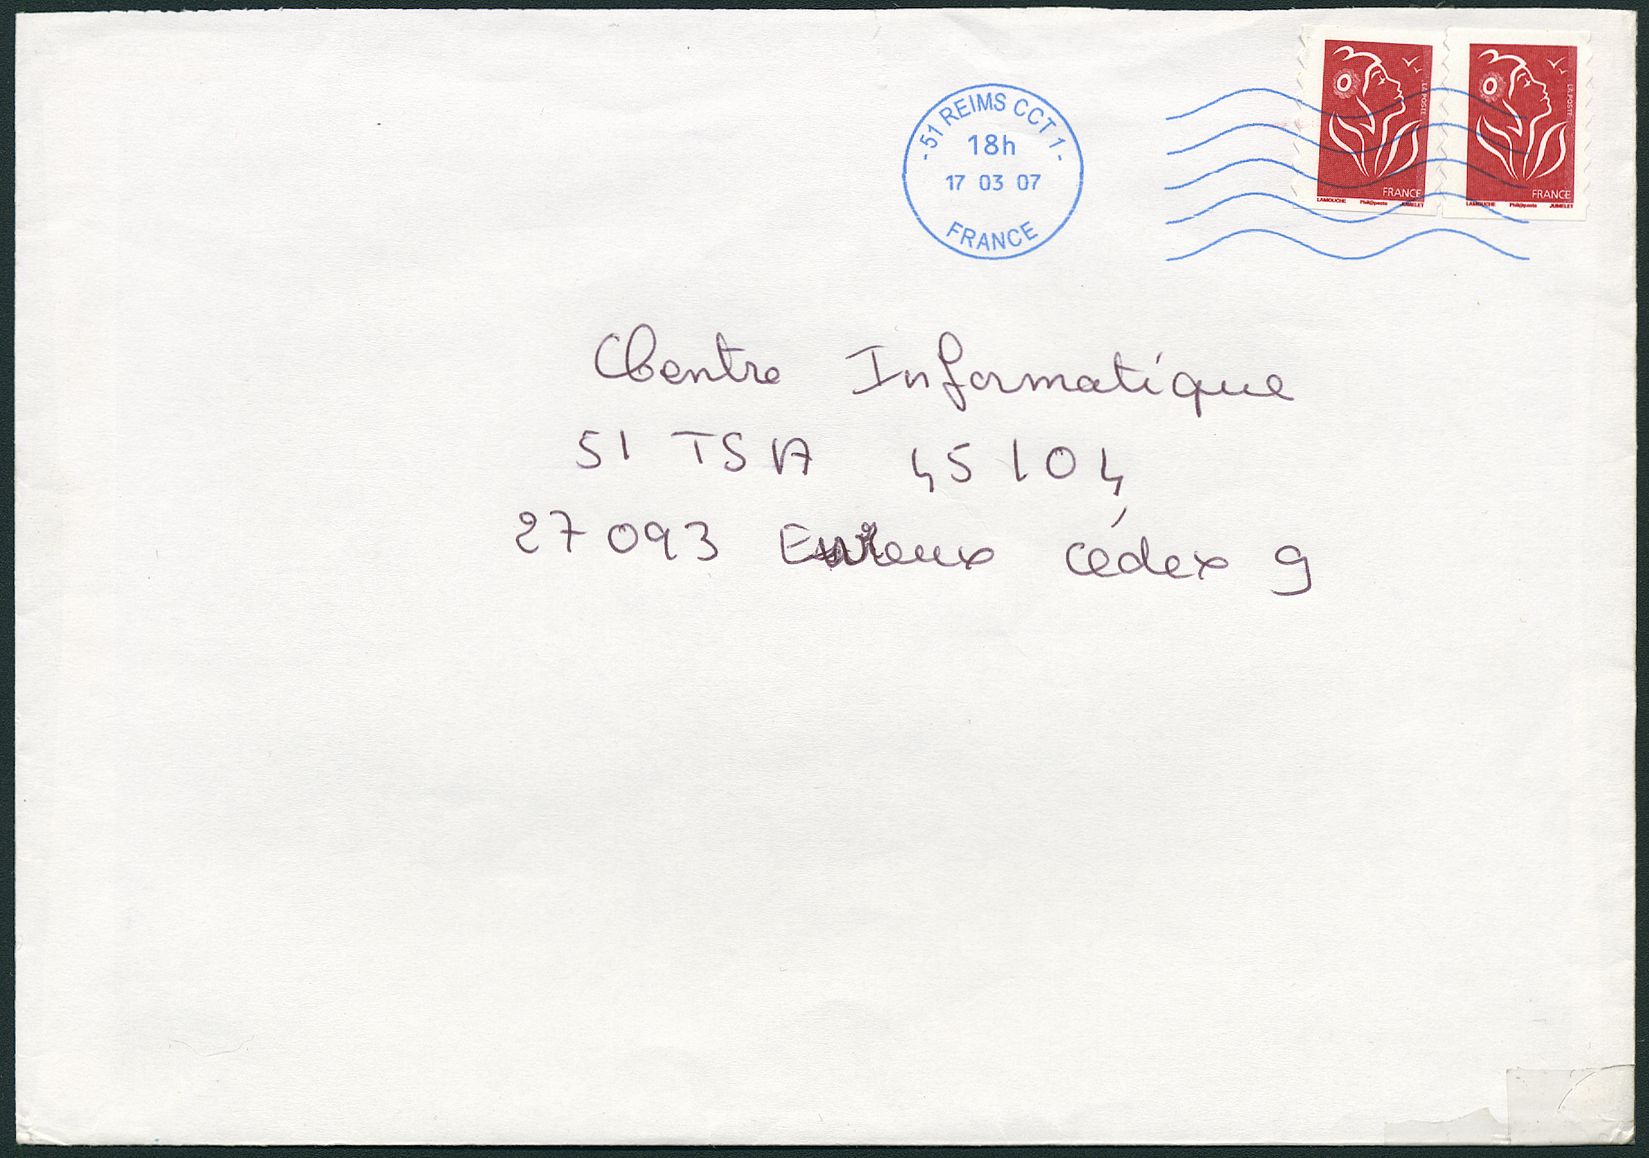 - 51 REIMS CCT 1 -
18h
17 03 07
FRANCE
LA POSTE
FRANCE
LAMOUCHE Phil@poste JUMELET
LA POSTE
FRANCE
LAMOUCHE Phil@poste JUMELET
Centre Informatique
51 TSA 45104
27093 Evreux cédex 9